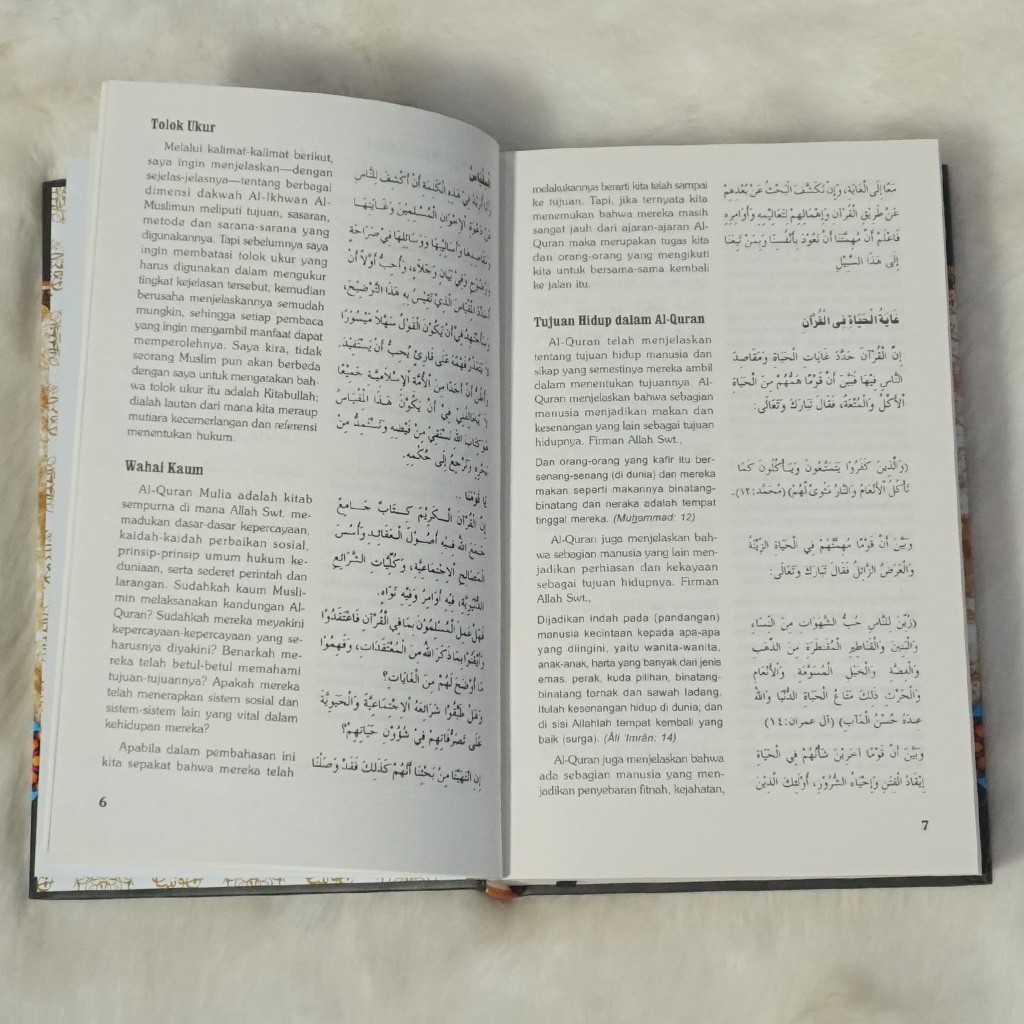 Tolok Ukur
Melalui kalimat-kalimat berikut,
saya ingin menjelaskan—dengan
sejelas-jelasnya—tentang berbagai
dimensi dakwah Al-Ikhwan Al-
Muslimun meliputi tujuan, sasaran,
metoda dan sarana-sarana yang
digunakannya. Tapi sebelumnya saya
ingin membatasi tolok ukur yang
harus digunakan dalam mengukur
tingkat kejelasan tersebut, kemudian
berusaha menjelaskannya semudah
mungkin, sehingga setiap pembaca
yang ingin mengambil manfaat dapat
memperolehnya. Saya kira, tidak
seorang Muslim pun akan berbeda
dengan saya untuk mengatakan bah-
wa tolok ukur itu adalah Kitabullah;
dialah lautan dari mana kita meraup
mutiara kecemerlangan dan referensi
menentukan hukum.
Wahai Kaum
Al-Quran Mulia adalah kitab
sempurna di mana Allah Swt. me-
madukan dasar-dasar kepercayaan,
kaidah-kaidah perbaikan sosial,
prinsip-prinsip umum hukum ke-
duniaan, serta sederet perintah dan
larangan. Sudahkah kaum Musli-
min melaksanakan kandungan Al-
Quran? Sudahkah mereka meyakini
kepercayaan-kepercayaan yang se-
harusnya diyakini? Benarkah me-
reka telah betul-betul memahami
tujuan-tujuannya? Apakah mereka
telah menerapkan sistem sosial dan
sistem-sistem lain yang vital dalam
kehidupan mereka?
Apabila dalam pembahasan ini
kita sepakat bahwa mereka telah
الْمِقْيَاسُ
وَأَنَا أُرِيْدُ فِيْ هَذِهِ الْكَلِمَةِ أَنْ أَكْشِفَ لِلنَّاسِ
عَنْ دَعْوَةِ الْإِخْوَانِ الْمُسْلِمِيْنَ وَغَايَتِهَا
وَمَقَاصِدِهَا وَأَسَالِيْبِهَا وَوَسَائِلِهَا فِيْ صَرَاحَةٍ
وَوُضُوْحٍ وَفِيْ بَيَانٍ وَجَلَاءٍ، وَأُحِبُّ أَوَّلًا أَنْ
الْمِقْيَاسَ الَّذِيْ نَقِيْسُ بِهِ هَذَا التَّوْضِيْحَ،
وَسَأَجْتَهِدُ فِيْ أَنْ يَكُوْنَ الْقَوْلُ سَهْلًا مَيْسُوْرًا
لَا يَتَعَذَّرُ فَهْمُهُ عَلَى قَارِئٍ يُحِبُّ أَنْ يَسْتَفِيْدَ.
وَأَظُنُّ أَنَّ أَحَدًا مِنَ الْأُمَّةِ الْإِسْلَامِيَّةِ جَمِيْعًا
لَا يُخَالِفُنِيْ فِيْ أَنْ يَكُوْنَ هَذَا الْمِقْيَاسُ
هُوَ كِتَابَ اللهِ نَسْتَقِيْ مِنْ فَيْضِهِ وَنَسْتَمِدُّ مِنْ
بَحْرِهِ وَنَرْجِعُ إِلَى حُكْمِهِ.
يَا قَوْمَنَا ..
إِنَّ الْقُرْآنَ الْكَرِيْمَ كِتَابٌ جَامِعٌ
جَمَعَ اللهُ فِيْهِ أُصُوْلَ الْعَقَائِدِ وَأُسُسَ
الْمَصَالِحِ الْاِجْتِمَاعِيَّةِ، وَكُلِّيَّاتِ الشَّرَائِعِ
الدُّنْيَوِيَّةِ، فِيْهِ أَوَامِرُ وَفِيْهِ نَوَاهٍ.
فَهَلْ عَمِلَ الْمُسْلِمُوْنَ بِمَا فِي الْقُرْآنِ فَاعْتَقَدُوْا
وَأَيْقَنُوْا بِمَا ذَكَرَ اللهُ مِنَ الْمُعْتَقَدَاتِ، وَفَهِمُوْا
مَا أَوْضَحَ لَهُمْ مِنَ الْغَايَاتِ؟
وَهَلْ طَبَّقُوْا شَرَائِعَهُ الْاِجْتِمَاعِيَّةَ وَالْحَيَوِيَّةَ
عَلَى تَصَرُّفَاتِهِمْ فِيْ شُؤُوْنِ حَيَاتِهِمْ؟
إِنِ انْتَهَيْنَا مِنْ بَحْثِنَا أَنَّهُمْ كَذَلِكَ فَقَدْ وَصَلْنَا
6
melakukannya berarti kita telah sampai
ke tujuan. Tapi, jika ternyata kita
menemukan bahwa mereka masih
sangat jauh dari ajaran-ajaran Al-
Quran maka merupakan tugas kita
dan orang-orang yang mengikuti
kita untuk bersama-sama kembali
ke jalan itu.
Tujuan Hidup dalam Al-Quran
Al-Quran telah menjelaskan
tentang tujuan hidup manusia dan
sikap yang semestinya mereka ambil
dalam menentukan tujuannya. Al-
Quran menjelaskan bahwa sebagian
manusia menjadikan makan dan
kesenangan yang lain sebagai tujuan
hidupnya. Firman Allah Swt.,
Dan orang-orang yang kafir itu ber-
senang-senang (di dunia) dan mereka
makan seperti makannya binatang-
binatang dan neraka adalah tempat
tinggal mereka. (Muḥammad: 12)
Al-Quran juga menjelaskan bah-
wa sebagian manusia yang lain men-
jadikan perhiasan dan kekayaan
sebagai tujuan hidupnya. Firman
Allah Swt.,
Dijadikan indah pada (pandangan)
manusia kecintaan kepada apa-apa
yang diingini, yaitu wanita-wanita,
anak-anak, harta yang banyak dari jenis
emas, perak, kuda pilihan, binatang-
binatang ternak dan sawah ladang.
Itulah kesenangan hidup di dunia; dan
di sisi Allahlah tempat kembali yang
baik (surga). (Âli 'Imrân: 14)
Al-Quran juga menjelaskan bahwa
ada sebagian manusia yang men-
jadikan penyebaran fitnah, kejahatan,
مَعًا إِلَى الْغَايَةِ، وَإِنْ تَكَشَّفَ الْبَحْثُ عَنْ بُعْدِهِمْ
عَنْ طَرِيْقِ الْقُرْآنِ وَإِهْمَالِهِمْ لِتَعَالِيْمِهِ وَأَوَامِرِهِ
فَاعْلَمْ أَنَّ مُهِمَّتَنَا أَنْ نَعُوْدَ بِأَنْفُسِنَا وَبِمَنْ تَبِعَنَا
إِلَى هَذَا السَّبِيْلِ
غَايَةُ الْحَيَاةِ فِي الْقُرْآنِ
إِنَّ الْقُرْآنَ حَدَّدَ غَايَاتِ الْحَيَاةِ وَمَقَاصِدَ
النَّاسِ فِيْهَا فَبَيَّنَ أَنَّ قَوْمًا هَمُّهُمْ مِنَ الْحَيَاةِ
الْأَكْلُ وَالْمُتْعَةُ، فَقَالَ تَبَارَكَ وَتَعَالَى:
(وَالَّذِيْنَ كَفَرُوْا يَتَمَتَّعُوْنَ وَيَأْكُلُوْنَ كَمَا
تَأْكُلُ الْأَنْعَامُ وَالنَّارُ مَثْوًى لَهُمْ) (مُحَمَّد:١٢).
وَبَيَّنَ أَنَّ قَوْمًا مُهِمَّتُهُمْ فِي الْحَيَاةِ الزِّيْنَةُ
وَالْعَرَضُ الزَّائِلُ فَقَالَ تَبَارَكَ وَتَعَالَى:
(زُيِّنَ لِلنَّاسِ حُبُّ الشَّهَوَاتِ مِنَ النِّسَاءِ
وَالْبَنِيْنَ وَالْقَنَاطِيْرِ الْمُقَنْطَرَةِ مِنَ الذَّهَبِ
وَالْفِضَّةِ وَالْخَيْلِ الْمُسَوَّمَةِ وَالْأَنْعَامِ
وَالْحَرْثِ ذَلِكَ مَتَاعُ الْحَيَاةِ الدُّنْيَا وَاللهُ
عِنْدَهُ حُسْنُ الْمَآبِ) (آل عمران:١٤)
وَبَيَّنَ أَنَّ قَوْمًا آخَرِيْنَ شَأْنُهُمْ فِي الْحَيَاةِ
إِيْقَادُ الْفِتَنِ وَإِحْيَاءُ الشُّرُوْرِ، أُوْلَئِكَ الَّذِيْنَ
7